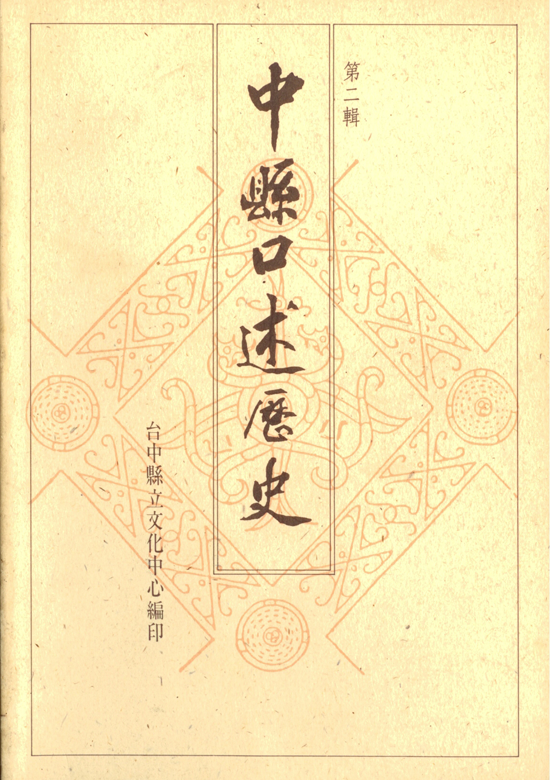 第二輯
中縣口述歷史
台中縣立文化中心編印